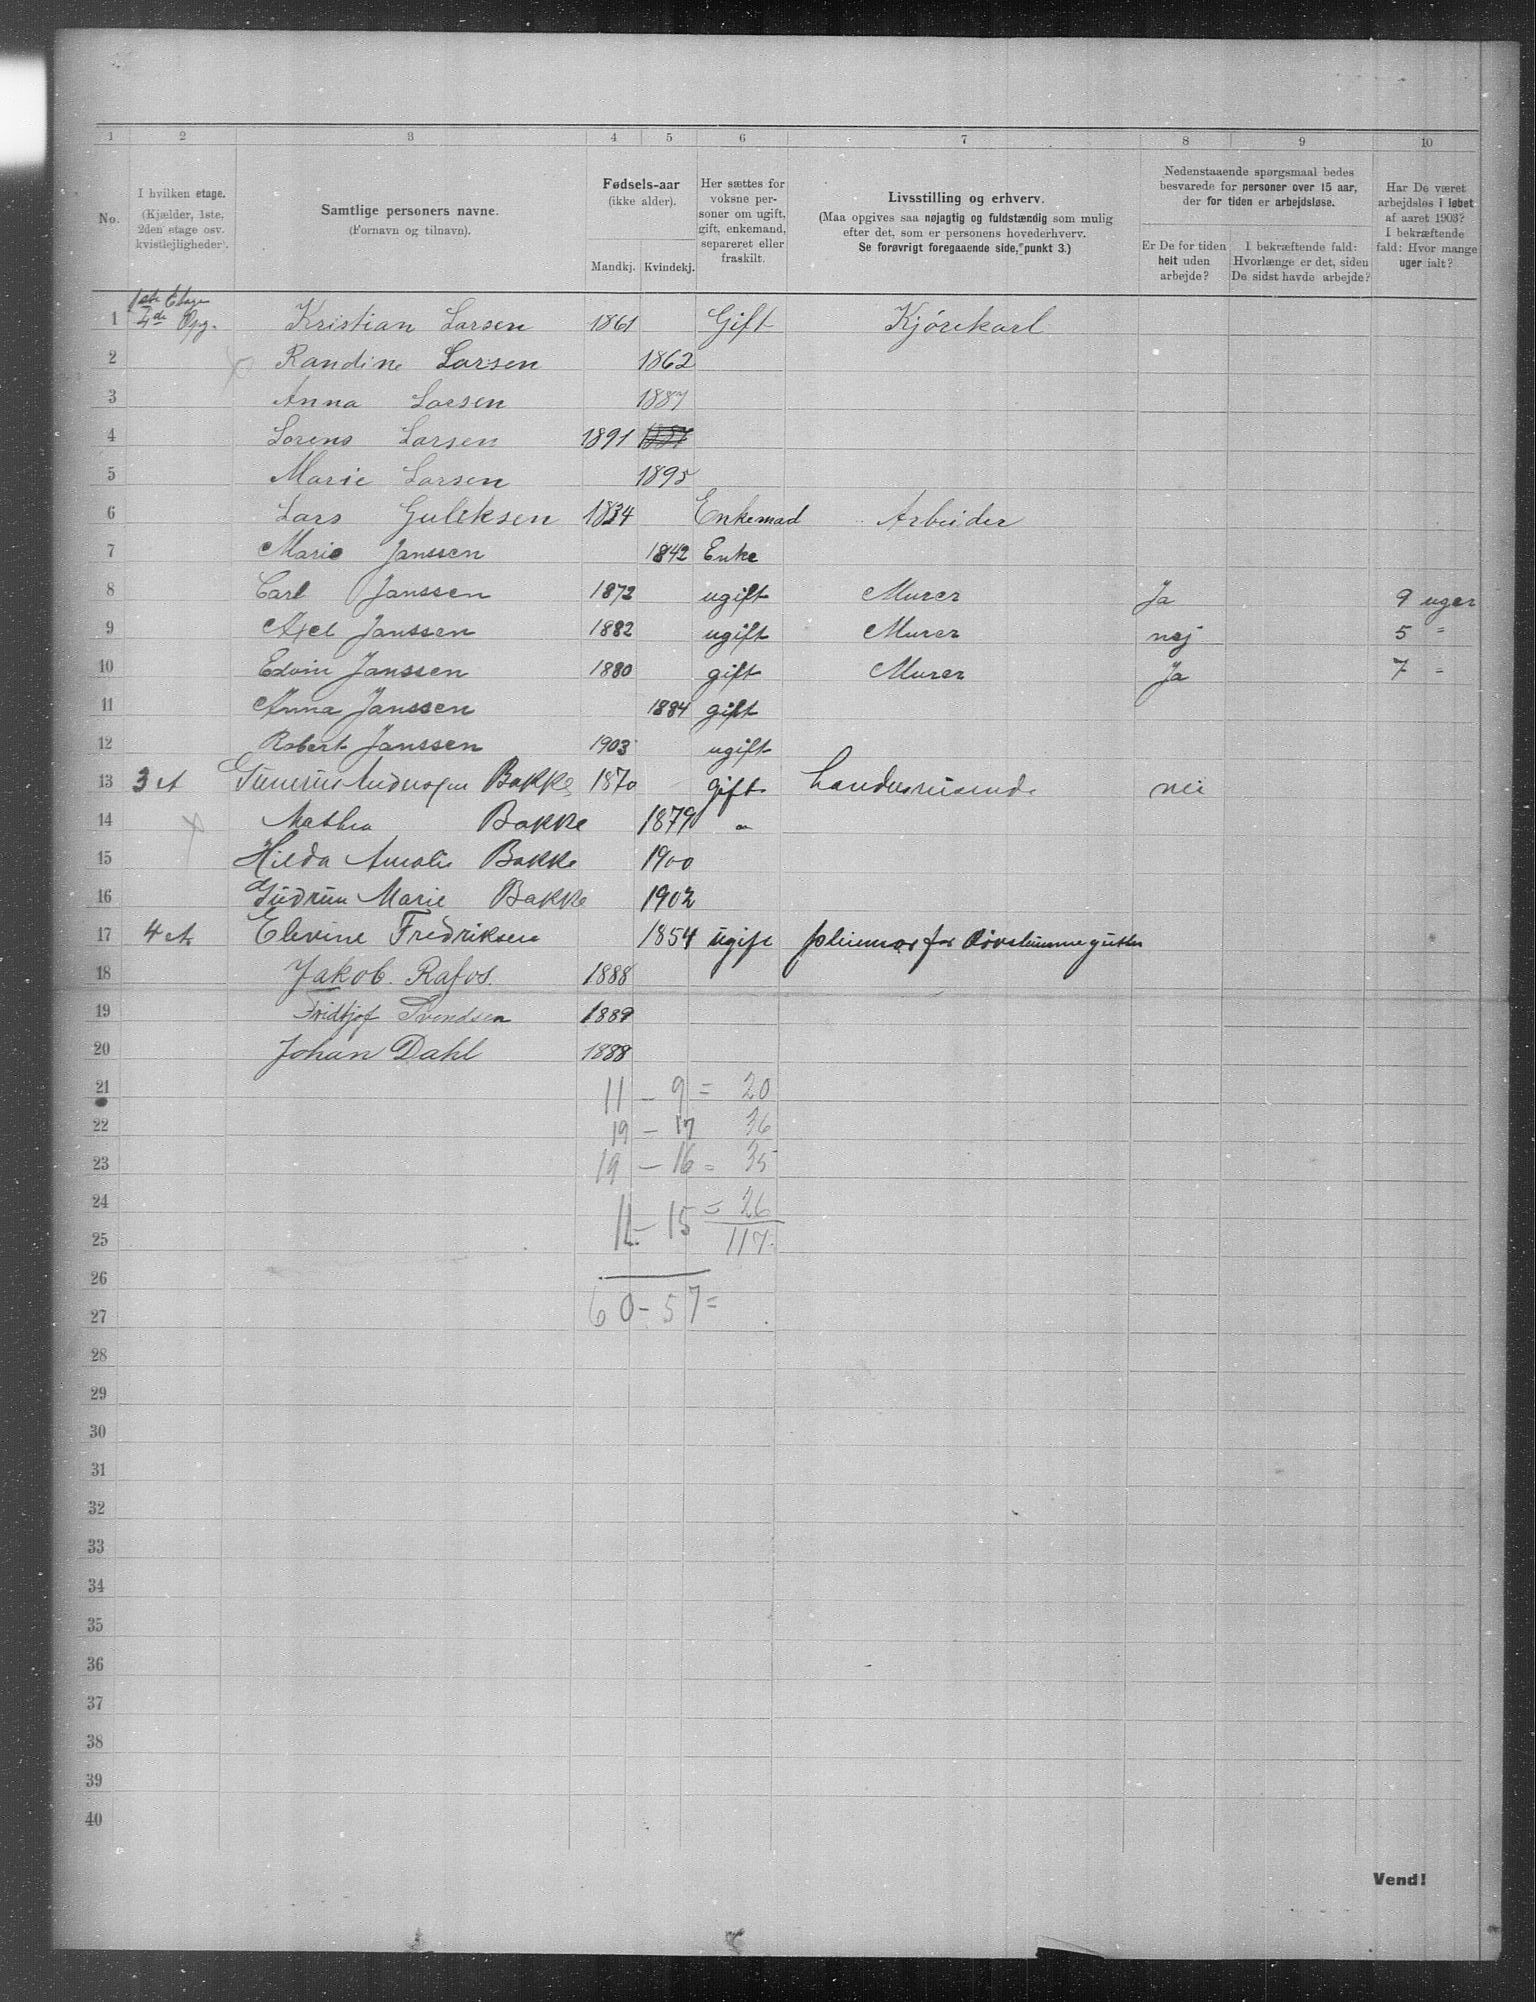 1 2 3 4 5 6 7 8 9 10
No.
I hvilken etage.
(Kjælder, 1ste,
2den etage osv.
kvistlejligheder).
Samtlige personers navne.
(Fornavn og tilnavn).
Fødsels-aar
(ikke alder).
Mandkj. Kvindekj.
Her sættes for
voksne per-
soner om ugift,
gift, enkemand,
separeret eller
fraskilt.
Livsstilling og erhverv.
(Maa opgives saa nøjagtig og fuldstændig som mulig
efter det, som er personens hovederhverv.
Se forøvrigt foregaaende side, punkt 3.)
Nedenstaaende spørgsmaal bedes
besvarede for personer over 15 aar,
der for tiden er arbejdsløse.
Er De for tiden
helt uden
arbejde?
I bekræftende fald:
Hvorlænge er det, siden
De sidst havde arbejde?
Har De været
arbejdsløs i løbet
af aaret 1903?
I bekræftende
fald: Hvor mange
uger ialt?
1ste Etage
1 Opg. Kristian Larsen 1861 Gift Kjørekarl
2 Randine Larsen 1862
3 Anna Larsen 1887
4 Lorens Larsen 1891 1887
5 Marie Larsen 1895
6 Lars Guliksen 1834 Enkemad Arbeider
7 Marie Janssen 1842 Enke
8 Carl Janssen 1872 ugift Murer Ja 9 uger
9 Axel Janssen 1882 ugift Murer nej 5 "
10 Edvin Janssen 1880 gift Murer Ja 7 "
11 Anna Janssen 1884 gift
12 Robert Janssen 1903 ugift
13 3 et Bakke 1870 gift Handelsreisende nei
14 Mathea Bakke 1879 "
15 Hilda Amalie Bakke 1900
16 Gudrun Marie Bakke 1902
17 4 et Elevine Fredriksen 1854 ugift pleiemor for Døvstumme gutter
18 Jakob Rafos. 1888
19 Fridtjof Svendsen 1889
20 Johan Dahl 1888
21 11 - 9 = 20
22 19 - 17 36
23 19 - 16 = 35
24 11 - 15 = 26
25 117
26
27 60 - 57 =
28
29
30
31
32
33
34
35
36
37
38
39
40
Vend!